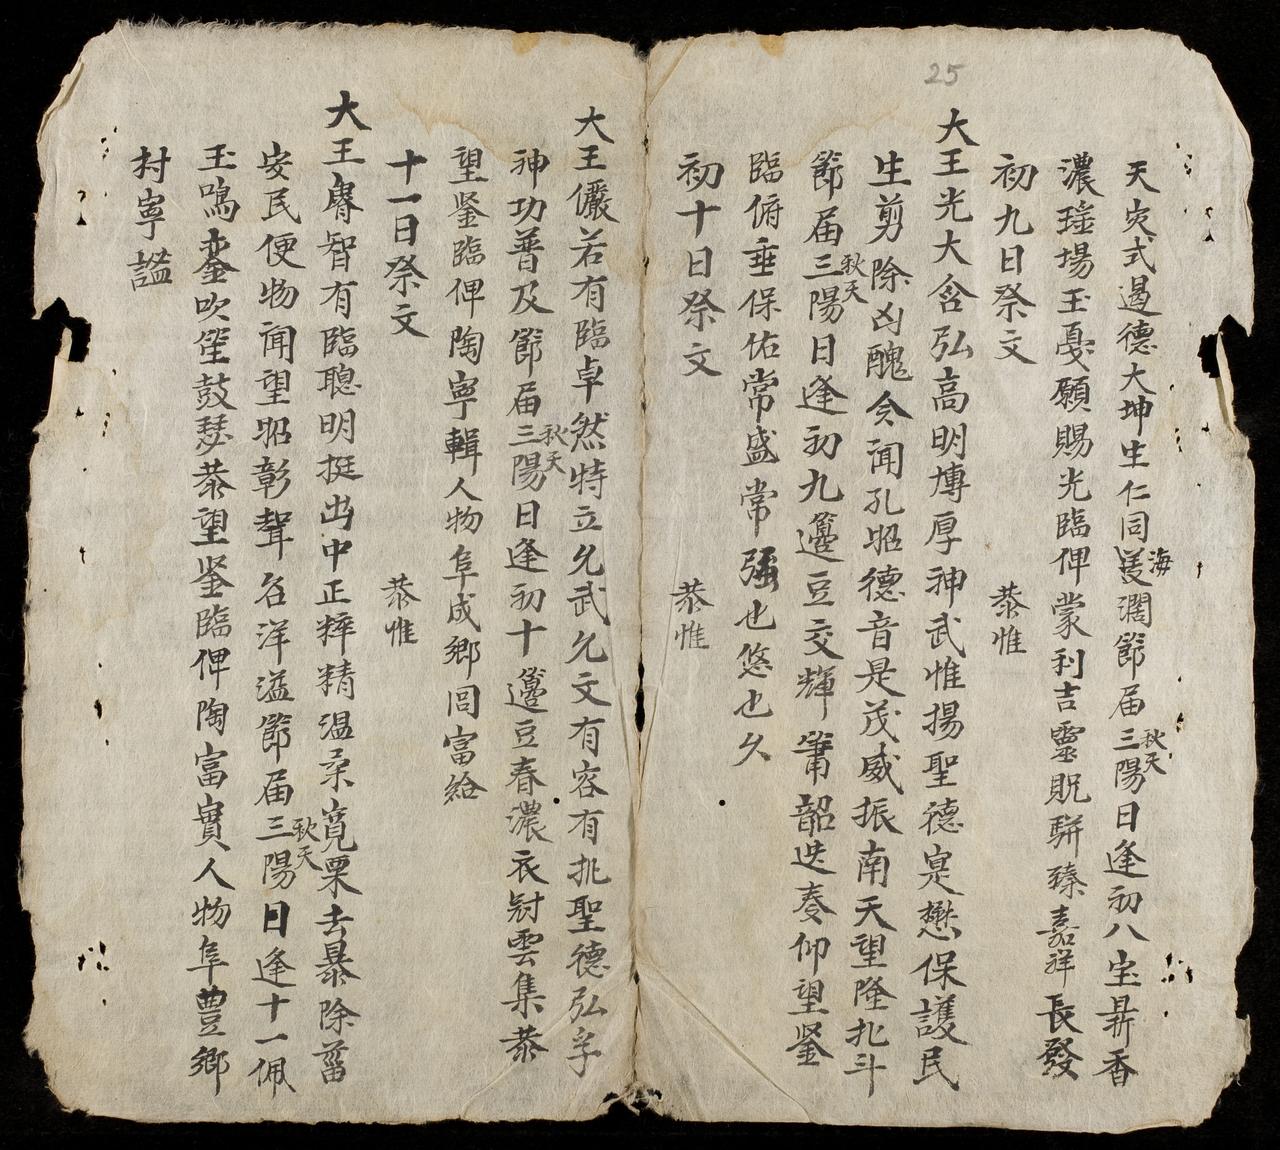 25
天灾式遏德大坤生仁同濩濶節届三陽日逢初八宝鼎香
海
秋天
濃瑤場玉戞願賜光臨俾蒙利吉靈貺駢臻嘉祥長發
初九日祭文
恭惟
大王光大含弘高明博厚神武惟揚聖德寔懋保護民
生剪除凶醜令聞孔昭德音是茂威振南天望隆北斗
節届三陽日逢初九籩豆交輝簫韶迭奏仰望鑒
秋天
臨俯垂保佑常盛常強也悠也久
初十日祭文
恭惟
大王儼若有臨卓然特立允武允文有容有執聖德弘孚
神功普及節届三陽日逢初十籩豆春濃衣冠雲集恭
秋天
望鑒臨俾陶寧輯人物阜成鄉閭富給
十一日祭文
恭惟
大王睿智有臨聰明挺出中正粹精温柔寬栗去暴除菑
安民便物聞望昭彰聲名洋溢節届三陽日逢十一佩
秋天
玉鳴鑾吹笙鼓瑟恭望鑒臨俾陶富實人物阜豐鄉
村寧謐